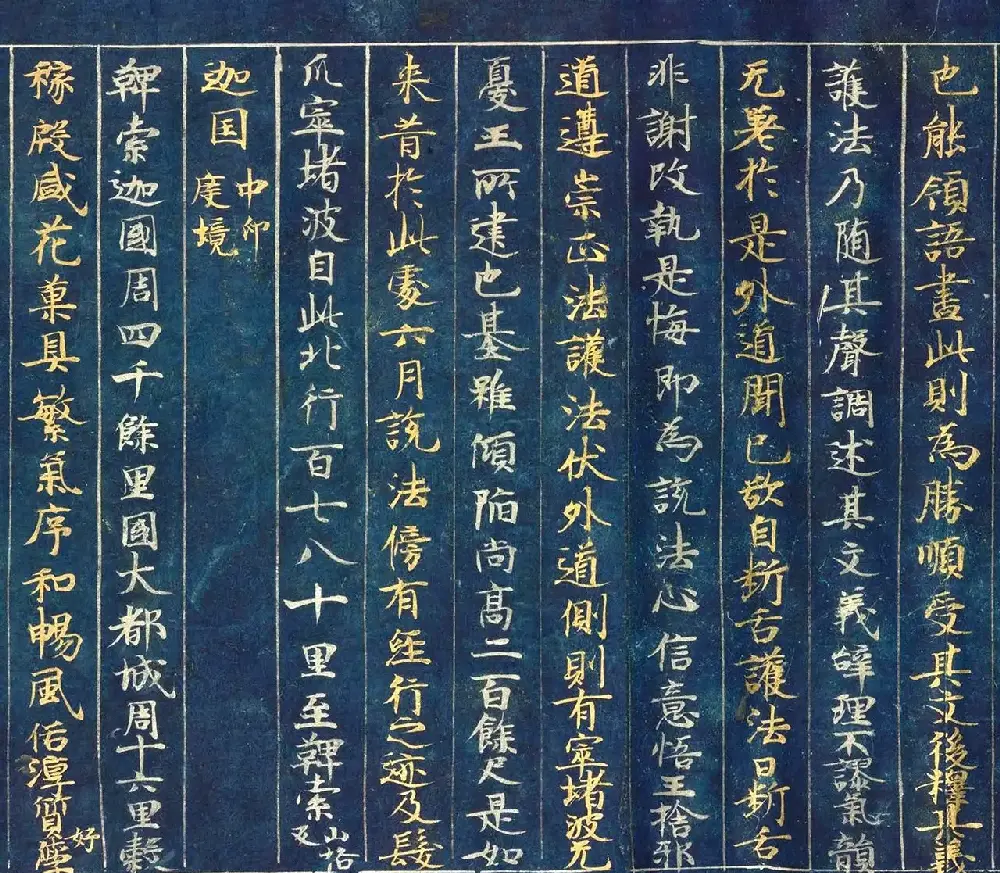 也能領語盡此則為勝順受其文後釋其義
護法乃随其聲調述其文義辝理不謬氣韻
无差於是外道聞已欲自斬舌護法曰斬舌
非謝改執是悔即為説法心信意悟王捨邪
道遵崇正法護法伏外道側則有窣堵波无
憂王所建也基雖傾陷尚高二百餘尺是如
来昔於此處六月說法傍有經行之迹及髪
爪窣堵波自此北行百七八十里至鞞索山格反
迦国中印度境
鞞索迦國周四千餘里國大都城周十六里穀
稼殷盛花菓具繁氣序和暢風俗淳質好學